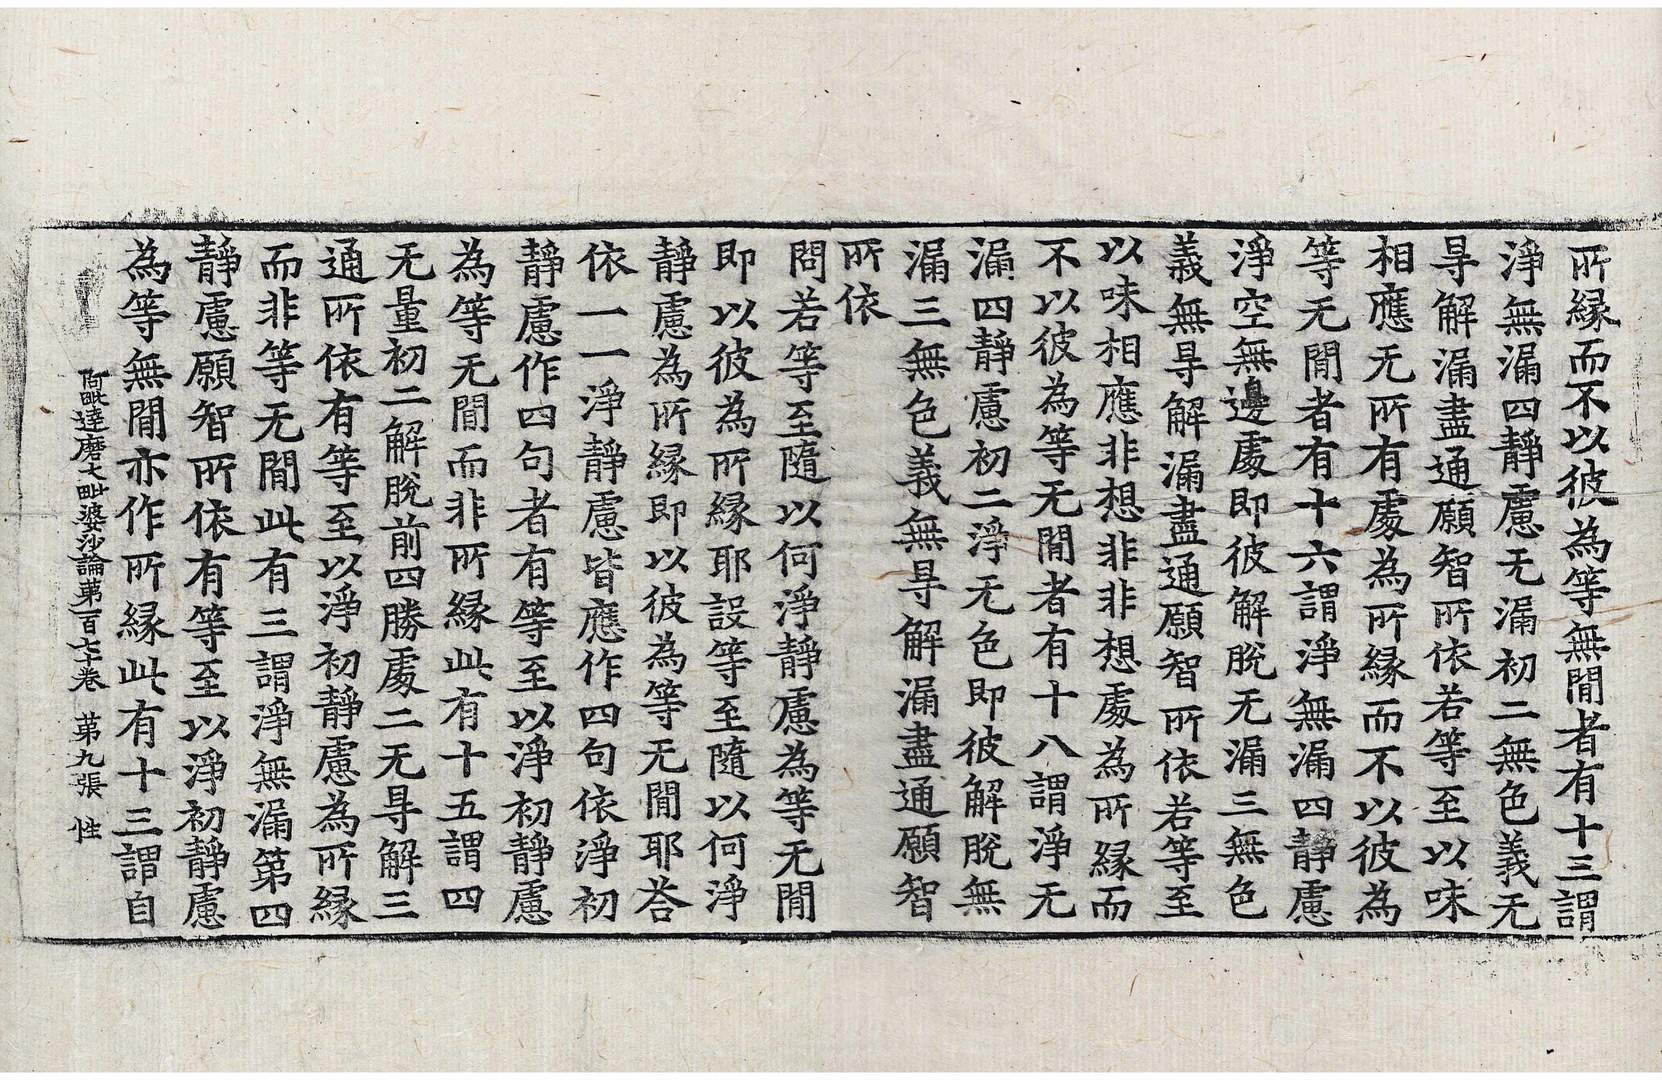 所縁而不以彼為等無閒者有十三謂
淨無漏四靜慮无漏初二無色義无
㝵解漏盡通願智所依若等至以味
相應无所有處為所縁而不以彼為
等无閒者有十六謂淨無漏四靜慮
淨空無邊處即彼解脫无漏三無色
義無㝵解漏盡通願智所依若等至
以味相應非想非非想處為所縁而
不以彼為等无閒者有十八謂淨无
漏四靜慮初二淨无色即彼解脫無
漏三無色義無㝵解漏盡通願智
所依
問若等至隨以何淨靜慮為等无閒
即以彼為所縁耶設等至隨以何淨
靜慮為所縁即以彼為等无閒耶荅
依一一淨靜慮皆應作四句依淨初
靜慮作四句者有等至以淨初靜慮
為等无閒而非所縁此有十五謂四
无量初二解脫前四勝處二无㝵解三
通所依有等至以淨初靜慮為所縁
而非等无閒此有三謂淨無漏第四
靜慮願智所依有等至以淨初靜慮
為等無閒亦作所縁此有十三謂自
阿毗達磨大毗婆沙論苐一百七十卷 苐九張 性